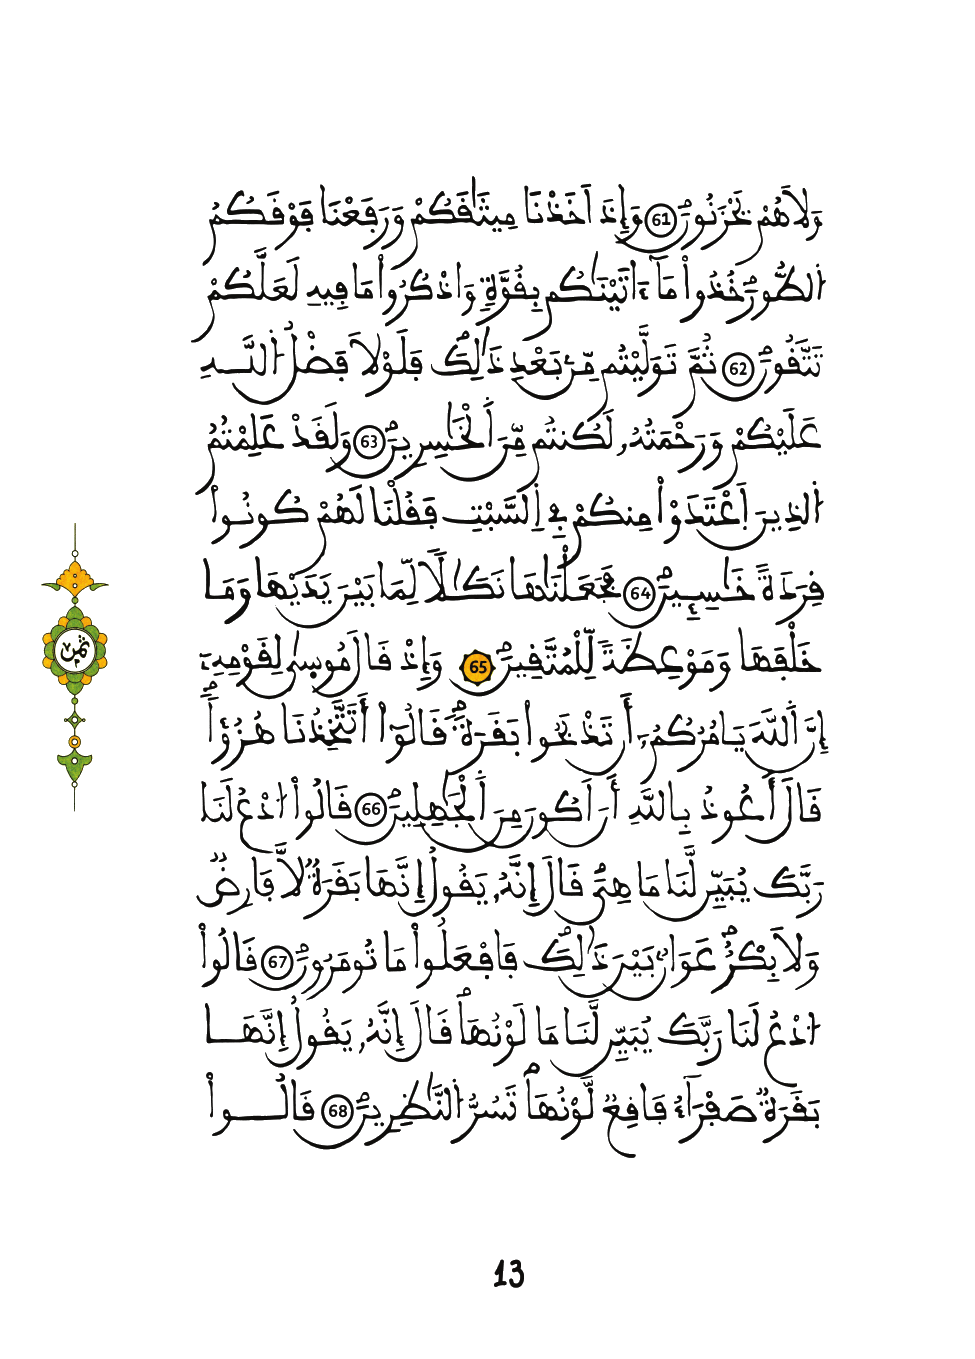 وَلَا هُمْ يَحْزَنُونَ 61 وَإِذَ اَخَذْنَا مِيثَٰقَكُمْ وَرَفَعْنَا فَوْقَكُمُ
اُ۬لطُّورَ خُذُواْ مَآ ءَاتَيْنَٰكُم بِقُوَّةٖ وَاذْكُرُواْ مَا فِيهِ لَعَلَّكُمْ
تَتَّقُونَ 62 ثُمَّ تَوَلَّيْتُم مِّنۢ بَعْدِ ذَٰلِكَ فَلَوْلَا فَضْلُ اُ۬للَّهِ
عَلَيْكُمْ وَرَحْمَتُهُۥ لَكُنتُم مِّنَ اَ۬لْخَٰسِرِينَ 63 وَلَقَدْ عَلِمْتُمُ
اُ۬لذِينَ اَ۪عْتَدَوْاْ مِنكُمْ فِے اِ۬لسَّبْتِ فَقُلْنَا لَهُمْ كُونُواْ
قِرَدَةً خَٰسِـِٕينَ 64 فَجَعَلْنَٰهَا نَكَٰلاٗ لِّمَا بَيْنَ يَدَيْهَا وَمَا
خَلْفَهَا وَمَوْعِظَةٗ لِّلْمُتَّقِينَ 65 وَإِذْ قَالَ مُوس۪ىٰ لِقَوْمِهِۦٓ
إِنَّ اَ۬للَّهَ يَامُرُكُمُۥٓ أَن تَذْبَحُواْ بَقَرَةٗۖ قَالُوٓاْ أَتَتَّخِذُنَا هُزُؤاٗۖ
قَالَ أَعُوذُ بِاللَّهِ أَنَ اَكُونَ مِنَ اَ۬لْجَٰهِلِينَ 66 قَالُواْ اُ۟دْعُ لَنَا
رَبَّكَ يُبَيِّن لَّنَا مَا هِيَۖ قَالَ إِنَّهُۥ يَقُولُ إِنَّهَا بَقَرَةٞ لَّا فَارِضٞ
وَلَا بِكْرٌۖ عَوَانُۢ بَيْنَ ذَٰلِكَۖ فَافْعَلُواْ مَا تُومَرُونَۖ 67 قَالُواْ
اُ۟دْعُ لَنَا رَبَّكَ يُبَيِّن لَّنَا مَا لَوْنُهَاۖ قَالَ إِنَّهُۥ يَقُولُ إِنَّهَا
بَقَرَةٞ صَفْرَآءُ فَاقِعٞ لَّوْنُهَاۖ تَسُرُّ اُ۬لنَّٰظِرِينَۖ 68 قَالُواْ
ثمن
13